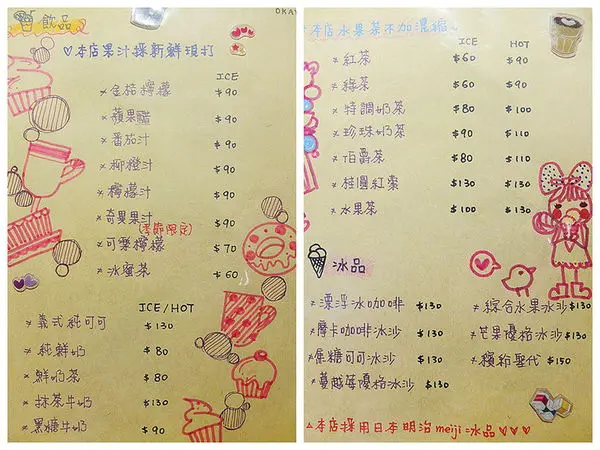 飲品
♡本店果汁採新鮮現打
ICE
×金桔檸檬 $90
×蘋果醋 $90
×番茄汁 $90
×柳橙汁 $90
×檸檬汁 $90
×奇異果汁 $90
(季節限定)
×可樂檸檬 $70
×冰蜜茶 $60
ICE/HOT
×義式純可可 $130
×純鮮奶 $80
×鮮奶茶 $80
×抹茶牛奶 $130
×黑糖牛奶 $90
本店水果茶不加濃縮~
ICE HOT
×紅茶 $60 $90
×綠茶 $60 $90
×特調奶茶 $80 $100
×珍珠奶茶 $90 $110
×伯爵茶 $80 $110
×桂圓紅棗 $130 $130
×水果茶 $100 $130
冰品
×漂浮冰咖啡 $130
×摩卡咖啡冰沙 $130
×焦糖可可冰沙 $130
×蔓越莓優格冰沙 $130
×綜合水果冰沙 $130
×芒果優格冰沙 $130
×繽紛聖代 $150
△本店採用日本明治meiji冰品♡♡♡